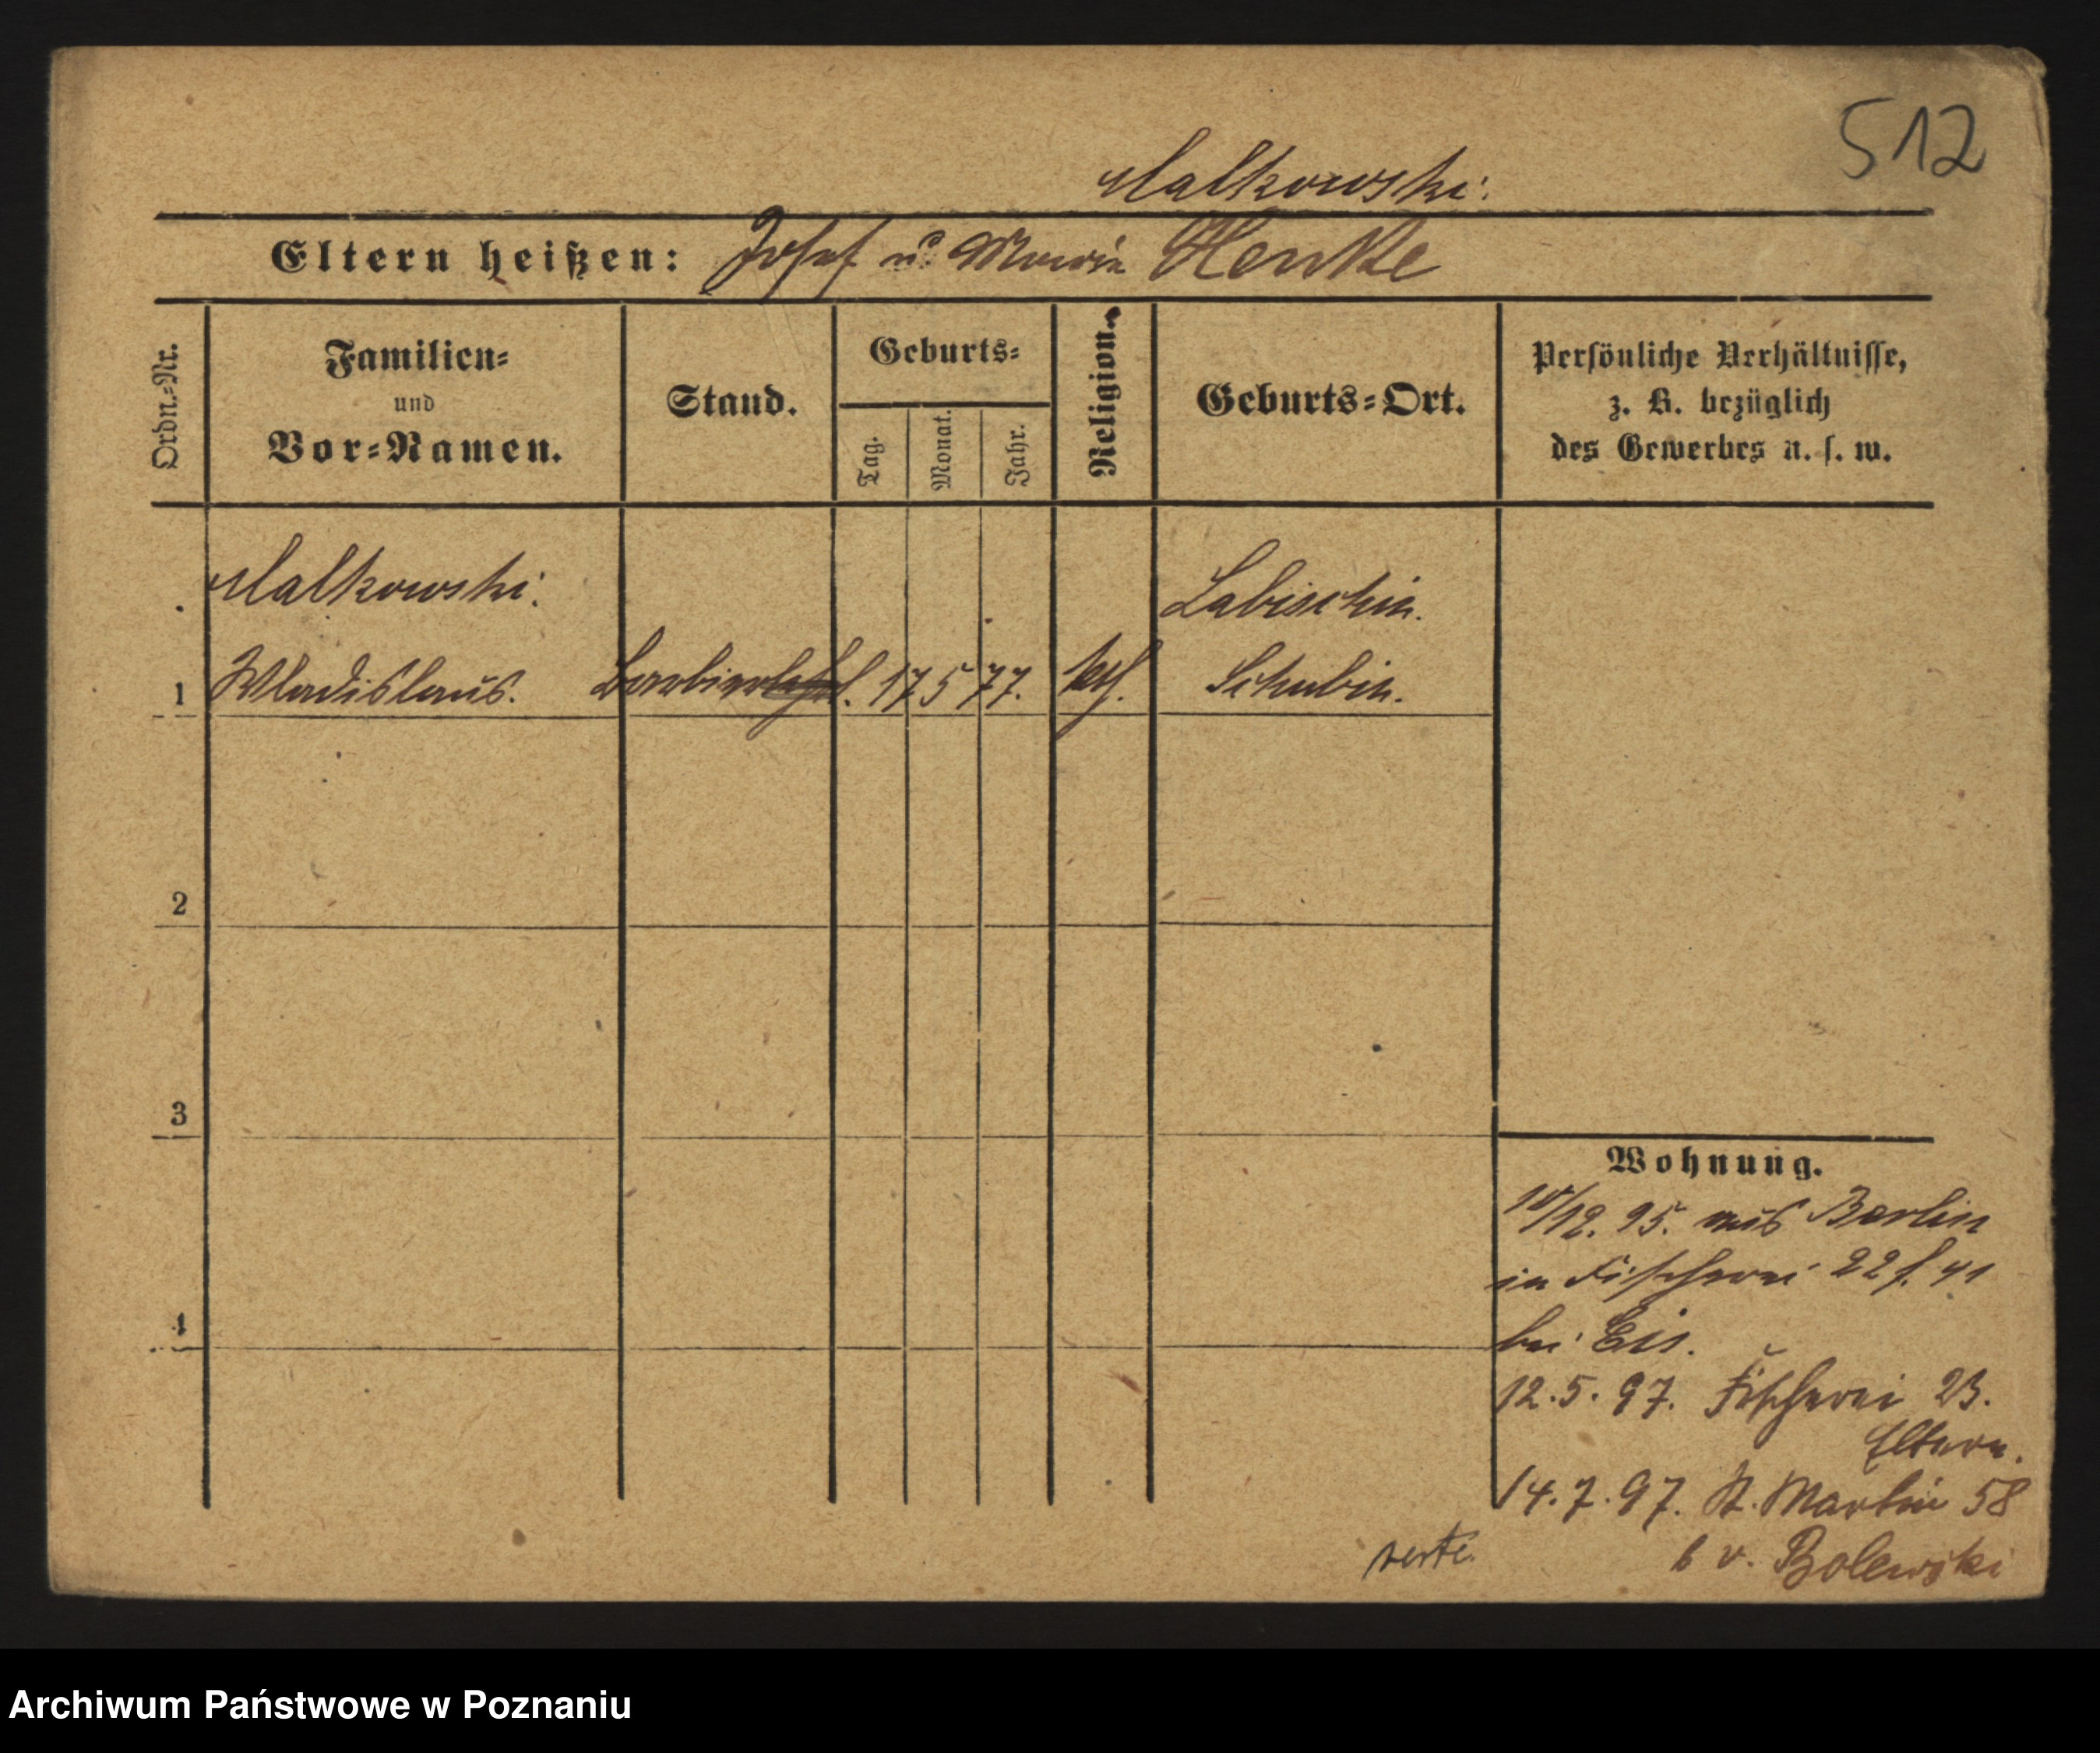 512
Malkowski.
Eltern heißen: Josef u. Maria Henke
Ordn.-Nr.
Familien-
und
Vor-Namen.
Stand.
Geburts-
Tag.
Monat.
Jahr.
Religion.
Geburts-Ort.
Persönliche Verhältnisse,
z. B. bezüglich
des Gewerbes u. s. w.
Malkowski. Labischin.
1 Wladislaus. Barbier 17 5 77. kth. Schubin.
2
3
4
Wohnung.
10/12. 95. aus Berlin
in Fischerei 22 f. 41
bei Eis.
12. 5. 97. Fischerei 23.
Eltern.
14. 7. 97. St. Martin 58
b v. Bolewski
verte.
Archiwum Państwowe w Poznaniu